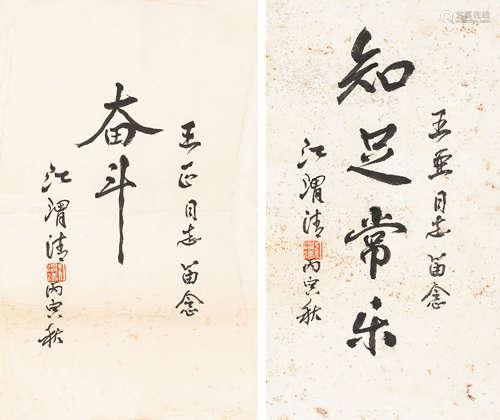 王正同志留念
奋斗
江渭清
丙寅秋
同志留念
知足常乐
江渭清
丙寅秋